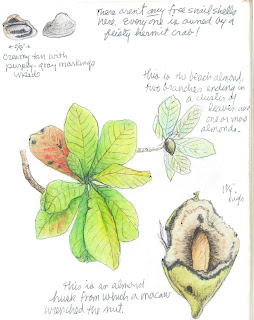 There aren't any free snail shells
here. Everyone is owned by a
feisty hermit crab!
Creamy tan with
purply-gray markings
inside
this is the beach almond,
two branches ending in
a cluster of
leaves and
one or more
almonds.
high
this is an almond
husk from which a macaw
wrenched the nut.